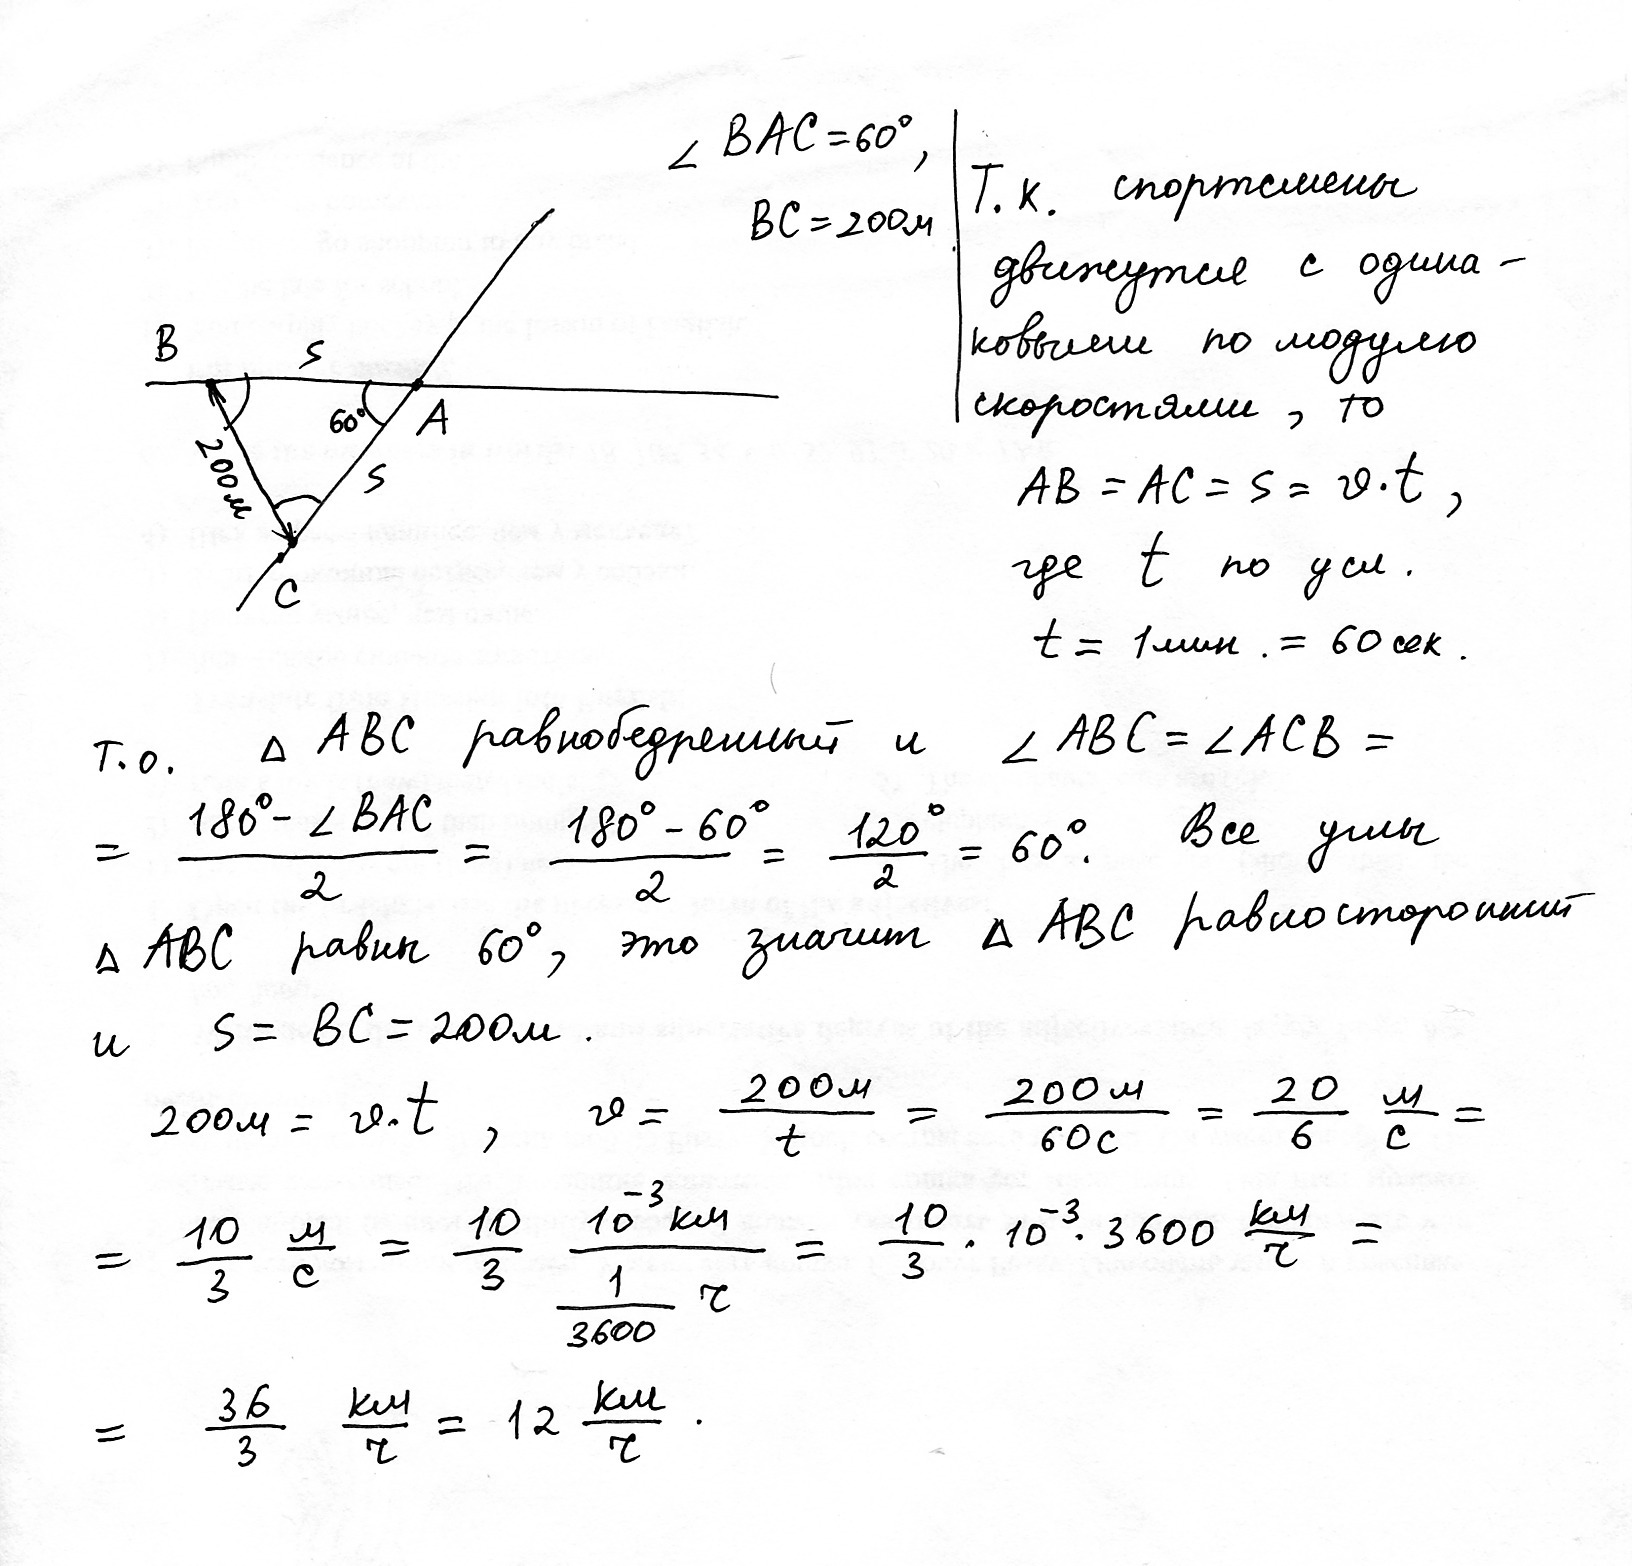 ∠ BAC = 60°,
BC = 200м
Т.к. спортсмены
движутся с одина-
ковыми по модулю
скоростями, то
AB = AC = S = v·t,
где t по усл.
t = 1 мин. = 60 сек.
B
S
60°
A
200м
S
C
Т.о. △ ABC равнобедренный и ∠ ABC = ∠ ACB =
= (180° - ∠ BAC)/2 = (180° - 60°)/2 = 120°/2 = 60°. Все углы
△ ABC равны 60°, это значит △ ABC равносторонний
и S = BC = 200м.
200м = v·t, v = 200м/t = 200м/60с = 20/6 м/с =
= 10/3 м/с = 10/3 (10⁻³ км)/(1/3600 ч) = 10/3 · 10⁻³ · 3600 км/ч =
= 36/3 км/ч = 12 км/ч.